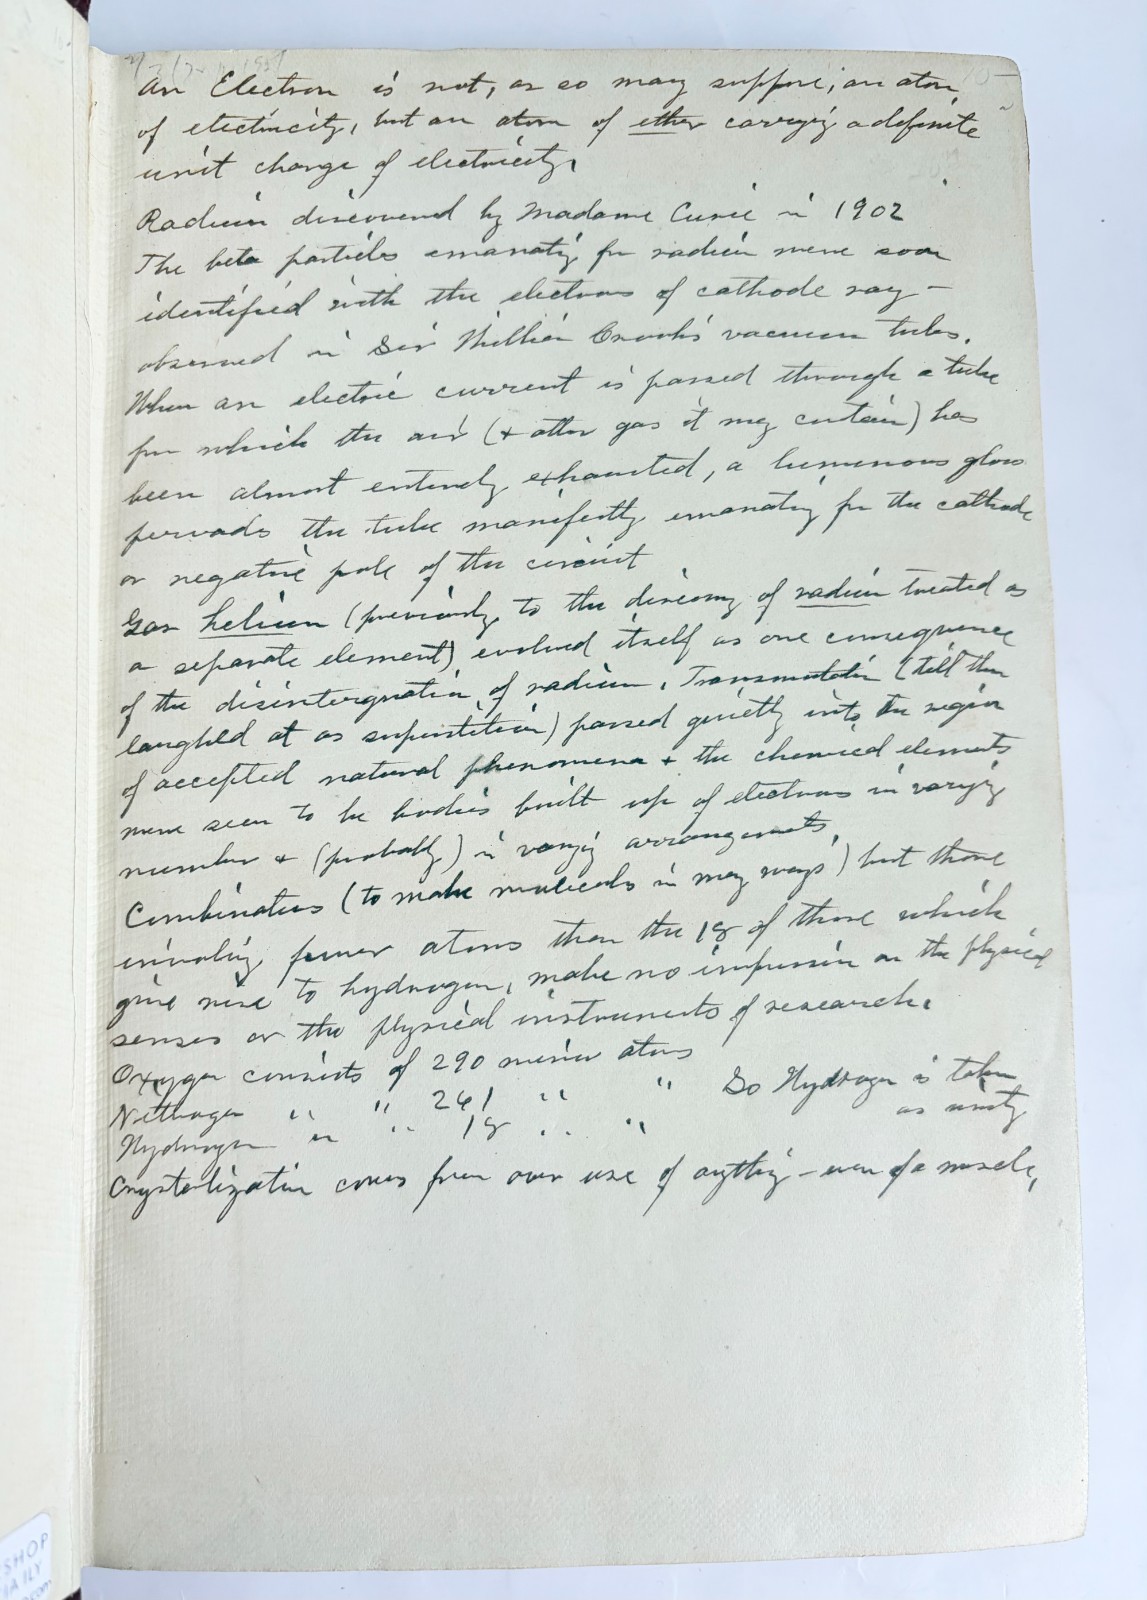 An Electron is not, as so many suppose, an atom
of electricity, but an atom of ether carrying a definite
unit charge of electricity,
Radium discovered by Madame Curie in 1902
The beta particles emanatig fm radium were soon
identified with the electrons of cathode ray –
observed in Sir William Crook's vacuum tubes.
When an electric current is passed through a tube
fm which the air (+ other gas it may contain) has
been almost entirely exhausted, a luminous glow
pervades the tube manifestly emanating fm the cathode
or negative pole of the circuit
Gas helium (previously to the discovery of radium treated as
a separate element) evolved itself as one consequence
of the disintergration of radium. Transmutation (till then
laughed at as superstition) passed quietly into the region
of accepted natural phenomena + the chemical elements
were seen to be bodies built up of electrons in varying
number + (probably) in varying arrangements.
Combinations (to make molecules in many ways) but those
involving fewer atoms than the 18 of those which
give rise to hydrogen, make no impression on the physical
senses or the physical instruments of research.
Oxygen consists of 290 minor atoms
Nitrogen " " 261 " " So Hydrogen is taken
as unity
Hydrogen " " 18 " "
Crystalization comes from over use of anythig – even of a muscle,
SHOP